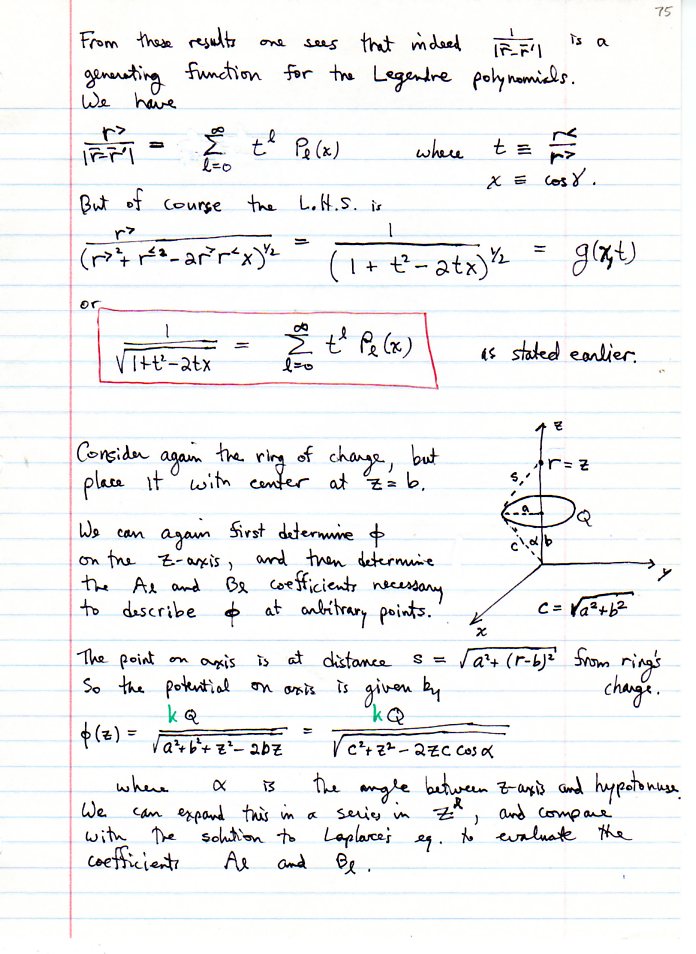 75
From these results one sees that indeed 1/|r̄-r̄'| is a
generating function for the Legendre polynomials.
We have
r>/|r̄-r̄'| = ∑_{l=0}^{∞} t^l P_l(x) where t ≡ r</r>
x ≡ cosγ.
But of course the L.H.S. is
r>/(r>² + r<² - 2r>r<x)^{1/2} = 1/(1 + t² - 2tx)^{1/2} = g(x,t)
or
1/√(1+t²-2tx) = ∑_{l=0}^{∞} t^l P_l(x) as stated earlier.
Consider again the ring of charge, but
place it with center at z=b.
We can again first determine ϕ
on the z-axis, and then determine
the Al and Bl coefficients necessary
to describe ϕ at arbitrary points.
z
r=z
s
a
Q
α
b
c
y
x
c = √(a²+b²)
The point on axis is at distance s = √(a²+(r-b)²) from ring's
So the potential on axis is given by charge.
ϕ(z) = kQ/√(a²+b²+z²-2bz) = kQ/√(c²+z²-2zc cosα)
where α is the angle between z-axis and hypotonuse.
We can expand this in a series in z^l, and compare
with the solution to Laplace's eq. to evaluate the
coefficients Al and Bl.